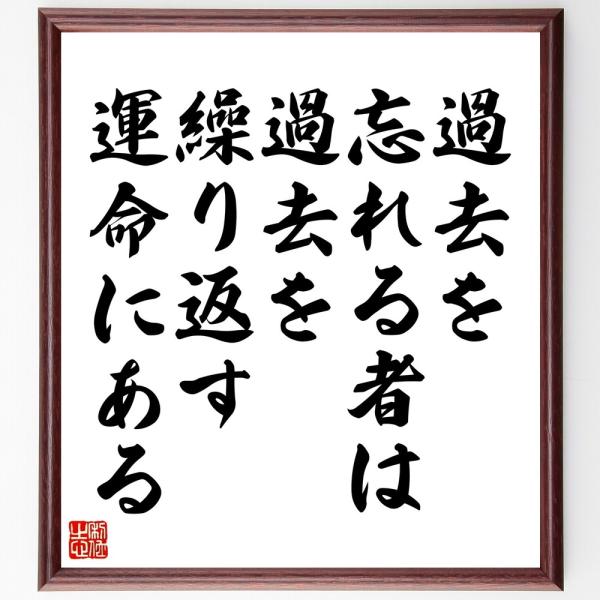 過去を
忘れる者は
過去を
繰り返す
運命にある